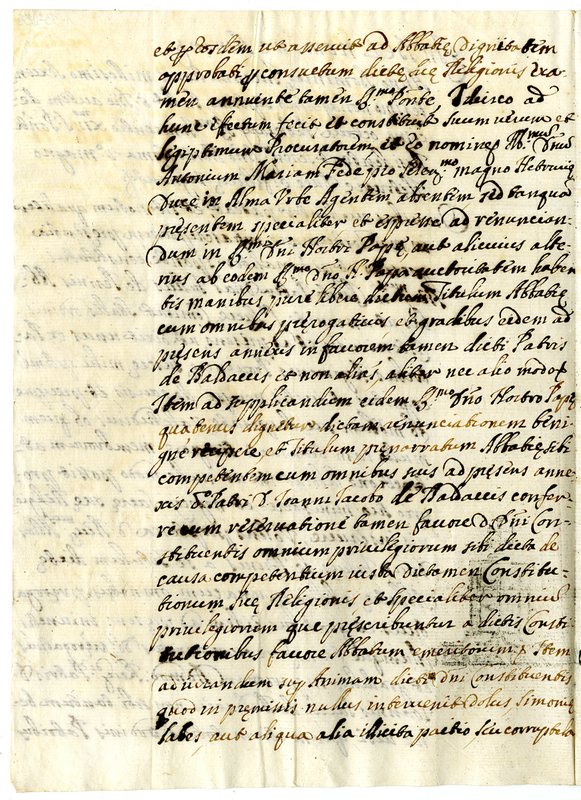 et p eosdem ut asseruit ad Abbatię Dignitatem
approbati p consuetum dictę suę Religionis exa-
men, annuente tamen S.mo Ponte, Idcirco ad
hunc effectum fecit et constituit suum verum et
legiptimum Procuratorem, et eo nomine Ill.mus Dnus
Antonium Mariam Fede pro magno Hetrurię
Duce in Alma Urbe Agentem absentem sed tanquā
pręsentem specialiter et expresse ad renuncian-
dum in S.mi Dni Nostri Papę, aut alicuius alte-
rius ab eodem S.mo Dno N. Papa auctoritatem haben
tis manibus pure libere dictum Titulum Abbatię
cum omnibus prerogativis et gradibus eidem ad
pręsens annexis in favorem tamen dicti Patris
de Baldaccis et non alias, aliter nec alio modo
Item ad supplicandum eidem S.mo Dno Nostro Papę
quatenus dignetur dictam renunciationem beni
gnè recipere, et Titulum prenarratum Abbatię sibi
competentem cum omnibus suis ad pręsens anne-
xis d.o Patri D. Ioanni Iacobo de Baldaccis confer-
re cum reservatione tamen favore D. Dni Con-
stituentis omnium privilegiorum sibi dicta de
causa competentium iuxta dictamen Constitu-
tionum suę Religionis et specialiter omnium
privilegiorum que pręscribuntur a dictis Consti
tutionibus favore Abbatum emeritorum Item
ad iurandum sup Animam dicti dni Constituentis
quod in pręmissis nullus intervenit dolus Simonię
labes, aut aliqua alia illicita pactio, seu corruptela